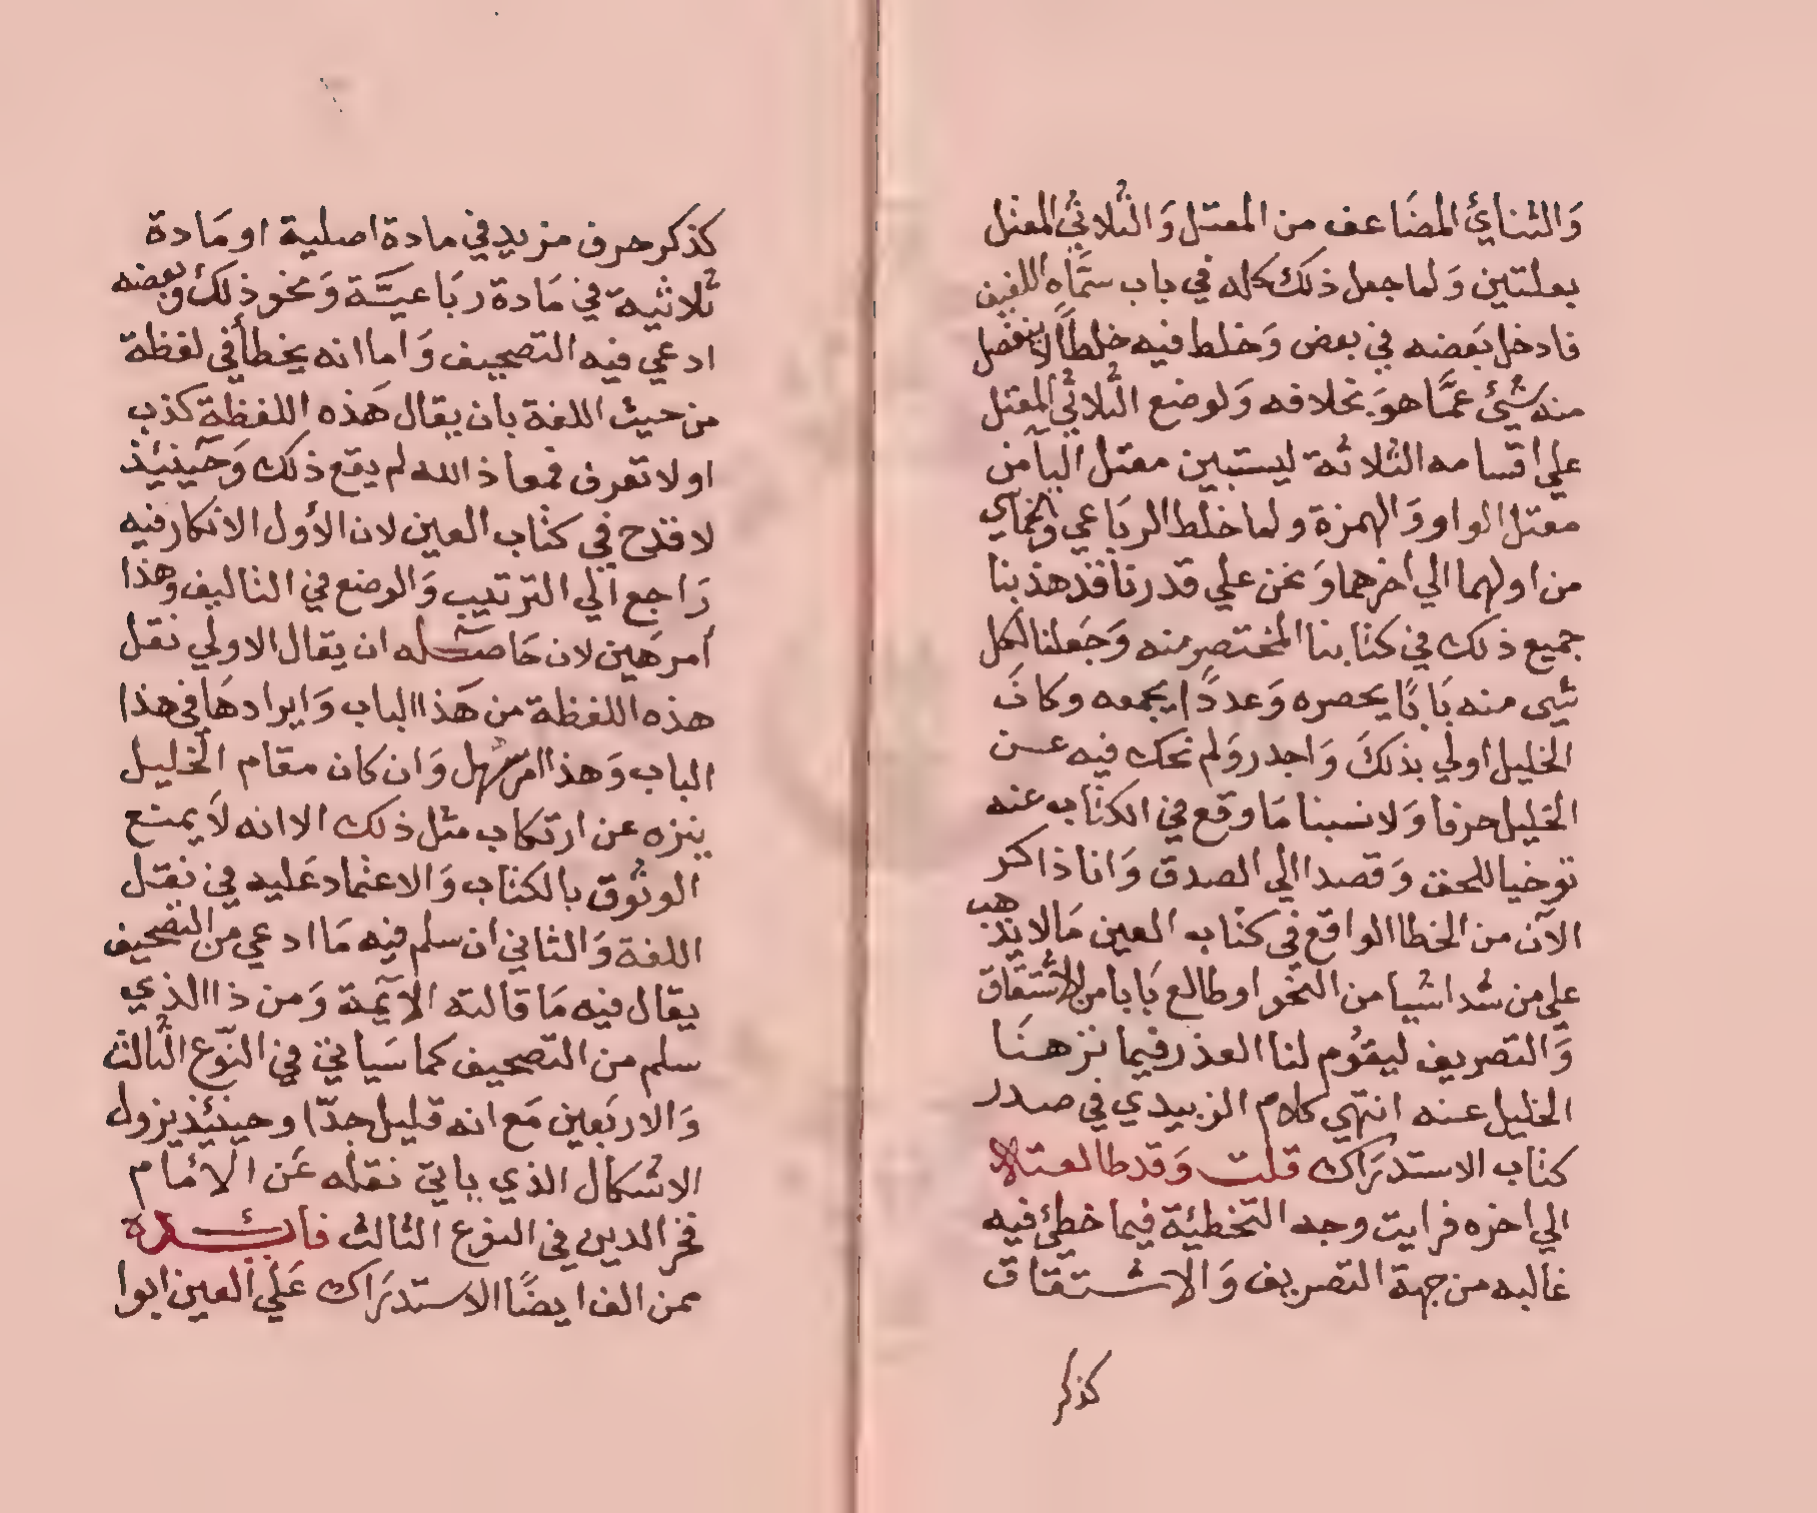 وَالثنايُ المضَاعف من المعتل وَالثلاثي المعتل
بعلتين وَلما جعل ذلك كله في باب سمَّاه اللفيف
فادخل بَعضه في بعض وَخلط فيه خلطاً لا ينفصل
منه شيُ عمَّا هوَ بخلافه وَلوضع الثلاثي المعتل
علي اقسامه الثلاثة ليستبين معتل اليآ من
معتل الواو وَالهمزة ولما خلط الربَاعي والخماسي
من اولهما الي اخرهما وَنحن علي قدرنا قد هذبنا
جميع ذلك في كتابنا المختصر منه وَجَعلنا لكل
شي منه بَابًا يحصره وَعددًا يجمعه وكانَ
الخليل اولي بذلكَ وَاجدر وَلم نحك فيه عن
الخليل حرفا وَلا نسبنا مَا وقع في الكتاب عنه
توخيا للحق وَقصدا الي الصدق وَانا ذاكر
الآن من الخطا الواقع في كتاب العين مَالا يذهب
علي من شدا شيا من النحو او طالع بَابا من الاشتقاق
وَالتصريف ليقوُم لنا العذر فيما نزهنَا
الخليل عنه انتهي كلام الزبيدي في صدر
كتاب الاستدرَاك قلت وَقد طالعته
الي اخره فرايت وجه التخطيئة فيما خطئ فيه
غالبه من جهة التصريف وَالاشتقاق
كذكر
كذكر حرف مزيد في مادة اصلية او مَادة
ثلاثيه في مَادة ربَاعيَّة وَنحو ذلك وبعضه
ادعي فيه التصحيف وَاما انه يخطأ في لفظة
من حيث اللغة بان يقال هَذه اللفظة كذب
او لا تعرف فمعاذ الله لم يقع ذلك وَحينيُذ
لا قدح في كتاب العين لان الأول الانكار فيه
رَاجع الي الترتيب وَالوضع في التاليف وهذا
أمر هَين لان حَاصله ان يقال الاولي نقل
هذه اللفظة من هَذا الباب وَايرادهَا في هذا
الباب وَهذا امر سهل وَان كان مقام الخليل
ينزه عن ارتكاب مثل ذلك الا انه لَا يمنع
الوثوق بالكتاب وَالاعتماد عَليه في نقل
اللغة وَالثاني ان سلم فيه مَا ادعي من التصحيف
يقال فيه مَا قالته الآيمة وَمن ذا الذي
سلم من التصحيف كما سَياتي في النّوع الثالث
وَالاربَعين مَع انه قليل جدّا وحينيُذ يزول
الاشكال الذي ياتي نقله عَن الأمَام
فخر الدين في النوع الثالث فايُدة
ممن الف ايضًا الاستدرَاك عَلي العين ابوا